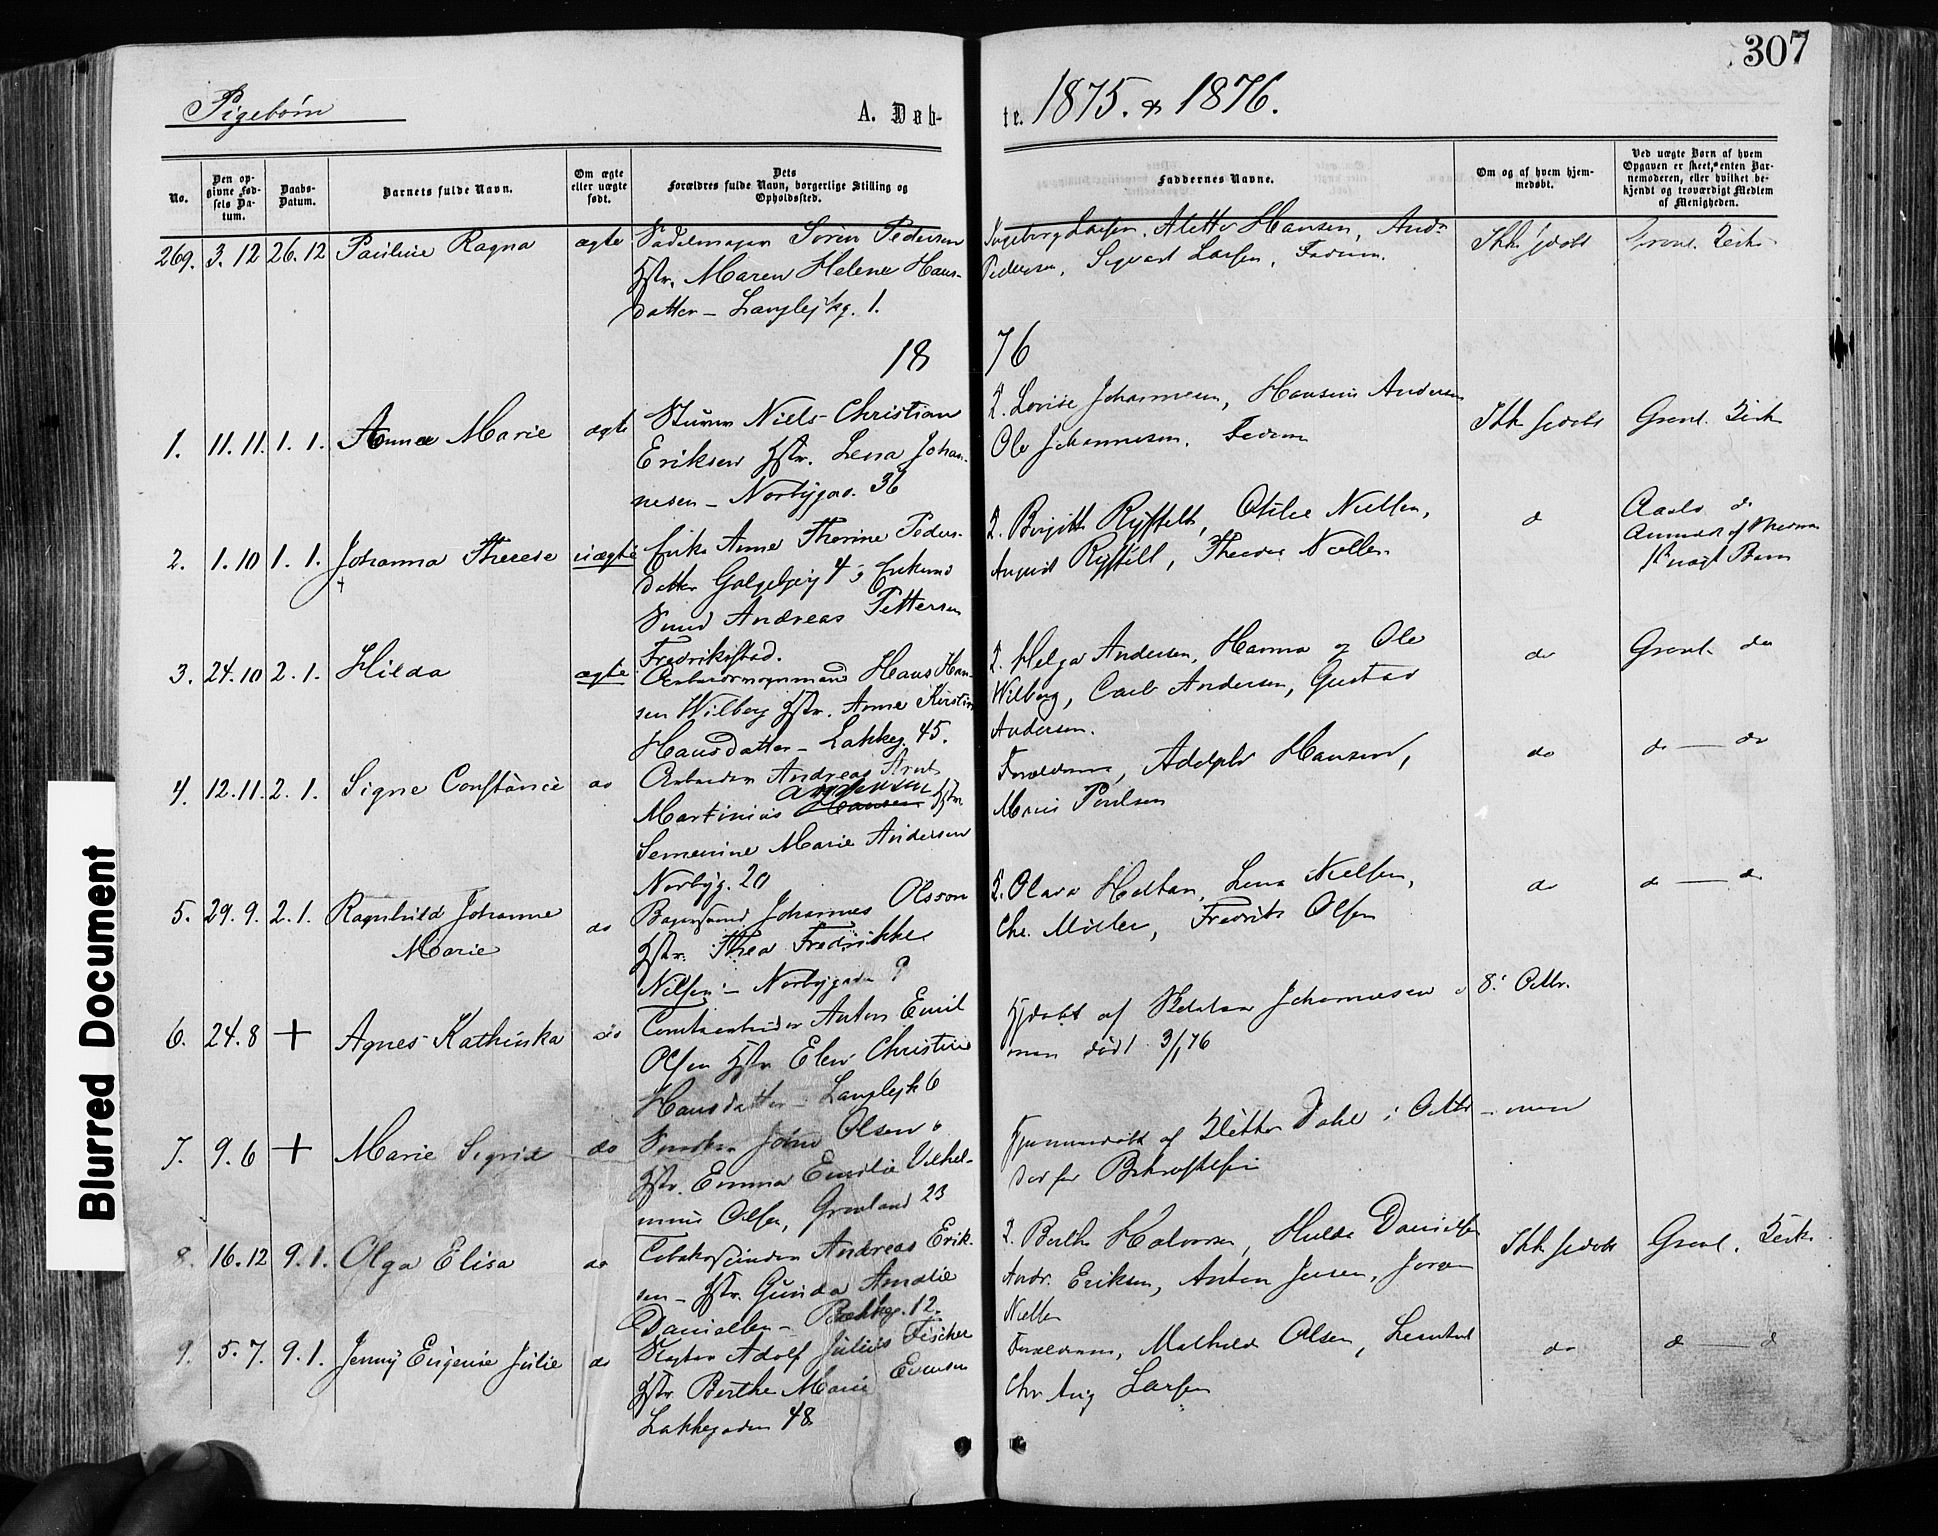 307
Pigebörn
A. Døb-
te. 1875. & 1876.
No.
Den op-
givne Fød-
sels Da-
tum.
Daabs-
Datum.
Barnets fulde Navn.
Om ægte
eller uægte
født.
Dets
Forældres fulde Navn, borgerlige Stilling og
Opholdssted.
Faddernes Navne.
Om og af hvem hjem-
medøbt.
Ved uægte Børn af hvem
Opgaven er skeet, enten Bar-
nemoderen, eller hvilket be-
kjendt og troværdigt Medlem
af Menigheden.
269. 3.12 26.12 Pauline Ragna ægte Sadelmager Sören Pedersen
Hstr. Maren Helene Hans-
datter – Langlejkg. 1.
Ingeborg Larsen, Alette Hansen, Andr.
Pedersen, Sigvart Larsen, Faderen.
Ikke hjdøbt
Grønl. Kirke
18 76
1. 11.11. 1.1. Anna Marie ægte Niels Christian
Eriksen Hstr. Lena Johan-
nesen – Norbygad. 36
2. Lovise Johannesen, Hansine Andersen
Ole Johannesen, Faderen
Ikke hjdøbt Grønl. Kirke
2. 1.10 1.1. Johanna Therese uægte Enke Anne Thorine Peders-
datter Galgebjerg 4 Enkemd
Smed Andreas Pettersen
Fredrikstad.
2. Birgitte Ryffelt, Otilie Nielsen,
August Ryffelt, Theodor Nielsen
do
Aaslo do
3. 24.10 2.1. Hilda ægte Arbeidsvognmand Hans Han-
sen Wilberg Hstr. Anne Kirstine
Hansdatter – Lakkeg. 45.
2. Helga Andersen, Hanna og Ole
Wilberg, Carl Andersen, Gustav
Andersen.
do Grønl. do
4. 12.11. 2.1. Signe Constance do Arbeider Andreas Arnt
Martinius Hansen Andersen Hstr.
Semenine Marie Andersen
Norbyg. 20
Forældrene, Adolph Hansen,
Marie Poulsen
do do – do
5. 29.9. 2.1. Ragnhild Johanne
Marie
do Bagersvend Johannes Olsson
Hstr. Thea Fredrikke
Nilsen – Norbygaden 9
2. Olava Holtan, Lena Nielsen,
Chr. Möller, Fredrik Olsen
do do – do
6. 24.8 + Agnes Kathinka do Anton Emil
Olsen Hstr. Elen Christine
Hansdatter – Langlejk 6
Hjdøbt af Johannesen 8. Octbr.
men död 3/1 76
7. 9.6 + Marie Sigrid do Snedker John Olsen
Hstr. Emma Emilie Vilhel-
mine Olsen, Grønland 23
Hjemmedøbt af Dahl i Octbr – men
8. 16.12 9.1. Olga Elisa do Tobakspinder Andreas Erik-
sen – Hstr. Gunda Amalie
Danielsen – Bakkeg. 12.
2. Berthe Halvorsen, Hulda Danielsen
Andr. Eriksen, Anton Jensen, Joran
Nielsen
Ikke hjdøbt Grønl. Kirke
9. 5.7. 9.1. Jenny Eugenie Julie do Slagter Adolf Julius Fischer
Hstr Berthe Marie Evensen
Lakkegaden 48
Forældrene, Mathilde Olsen,
Chr Aug Larsen
do do – do
Blurred Document